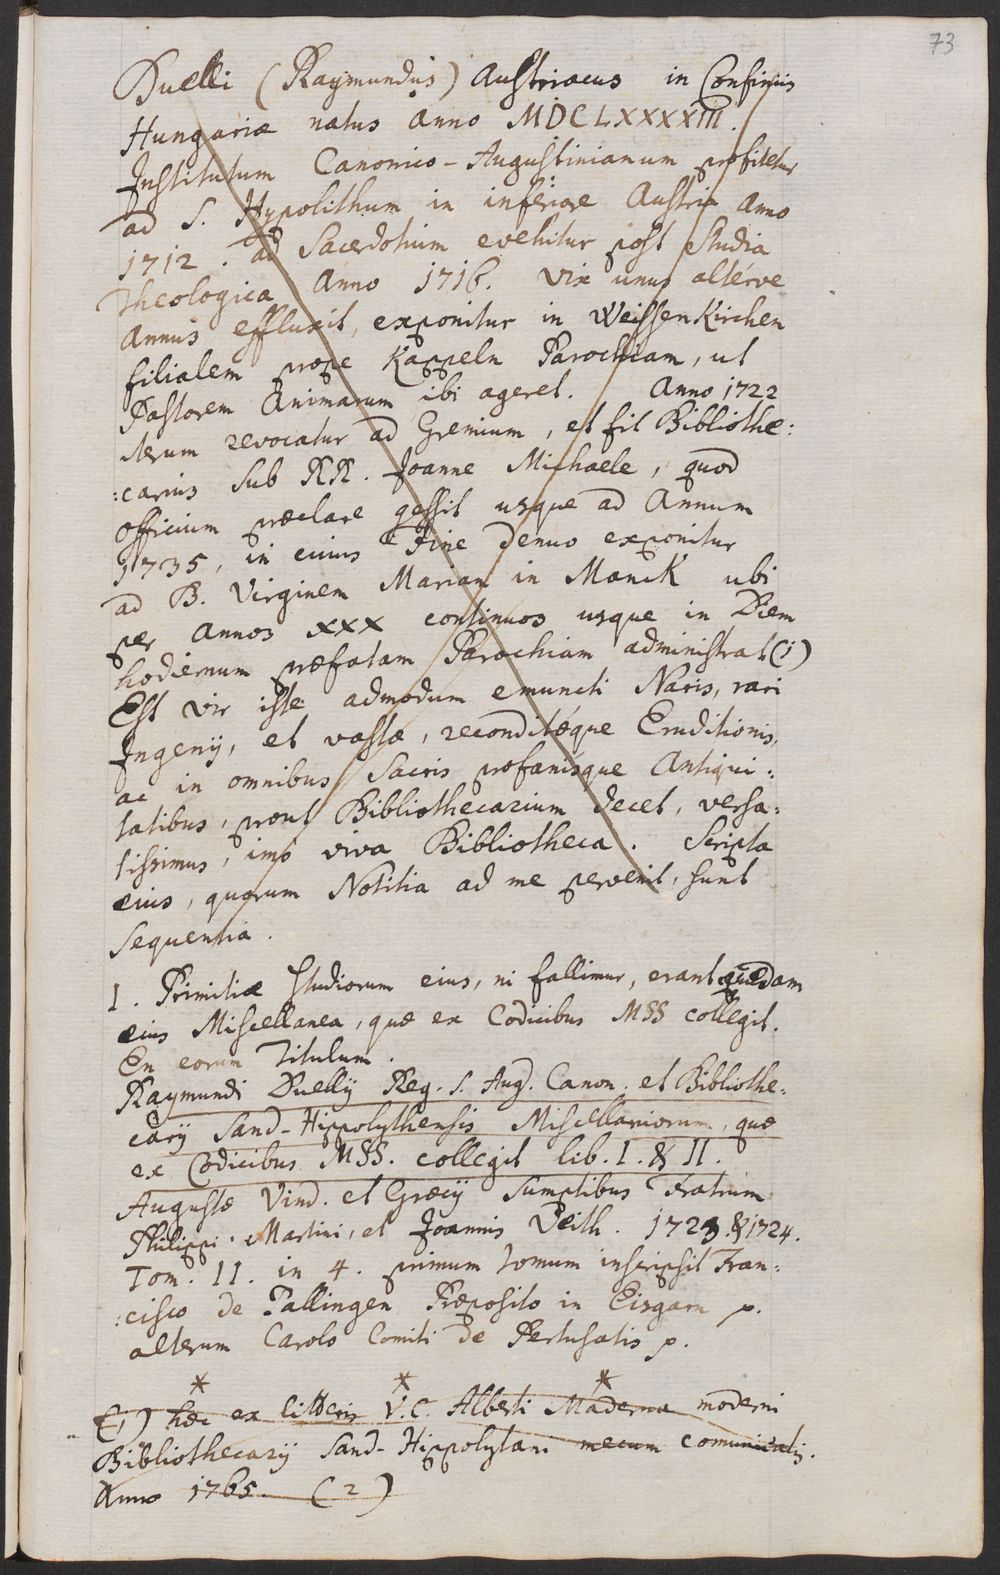 73
Duelli (Raymundus) Austriacus in Confiniis
Hungariæ natus anno MDCLXXXXIII.
Institutum Canonico-Augustinianum profitetur
ad S. Hypolithum in inferiore Austria anno
1712. ad Sacerdotium evehitur post studia
Theologica Anno 1716. vix unus alterve
annus effluxit, exponitur in Weissen Kirchen
filialem prope Kappeln Parochiam, ut
Pastorem Animarum ibi ageret. Anno 1722
iterum revocatur ad Gremium, et fit Bibliothe:
:carius sub RR. Joanne Michaele, quod
officium præclare gessit usque ad Annum
1735, in cuius Fine denuo exponitur
ad B. Virginem Mariam in Manck ubi
per annos XXX continuos usque in Diem
hodiernum præfatam Parochiam administrat (1)
Est vir iste admodum emuncti Naris, rari
Ingenij, et vastæ, reconditæque Eruditionis,
ac in omnibus Sacris profanisque Antiqui:
tatibus, prout Bibliothecarium decet, versa:
tissimus, imò viva Bibliotheca. Scripta
eius, quorum Notitia ad me pervenit, sunt
sequentia.
I. Primitiæ studiorum eius, ni fallimur, erant quædam
eius Miscellanea, quæ ex Codicibus MSS collegit.
En eorum Titulum.
Raymundi Duelly Reg. S. Aug. Canon. et Bibliothe:
carij Sand-Hippolythensis Miscellaniorum, quæ
ex Codicibus MSS. collegit lib. I. & II.
Augustæ Vind. et Græcij Sumptibus Fratrum
Philippi. Martini, et Joannis Veith. 1723. & 1724.
Tom. II. in 4. primum tomum inscripsit Fran:
:cisco de Tallingen Præposito in Eisgarn p.
alterum Carolo Comiti de Pertusatis p.
* * *
(1) hæc ex litteris V.C. Alberti Maderna moderni
Bibliothecarij Sand-Hippolytani mecum comunicatis.
Anno 1765. (2)